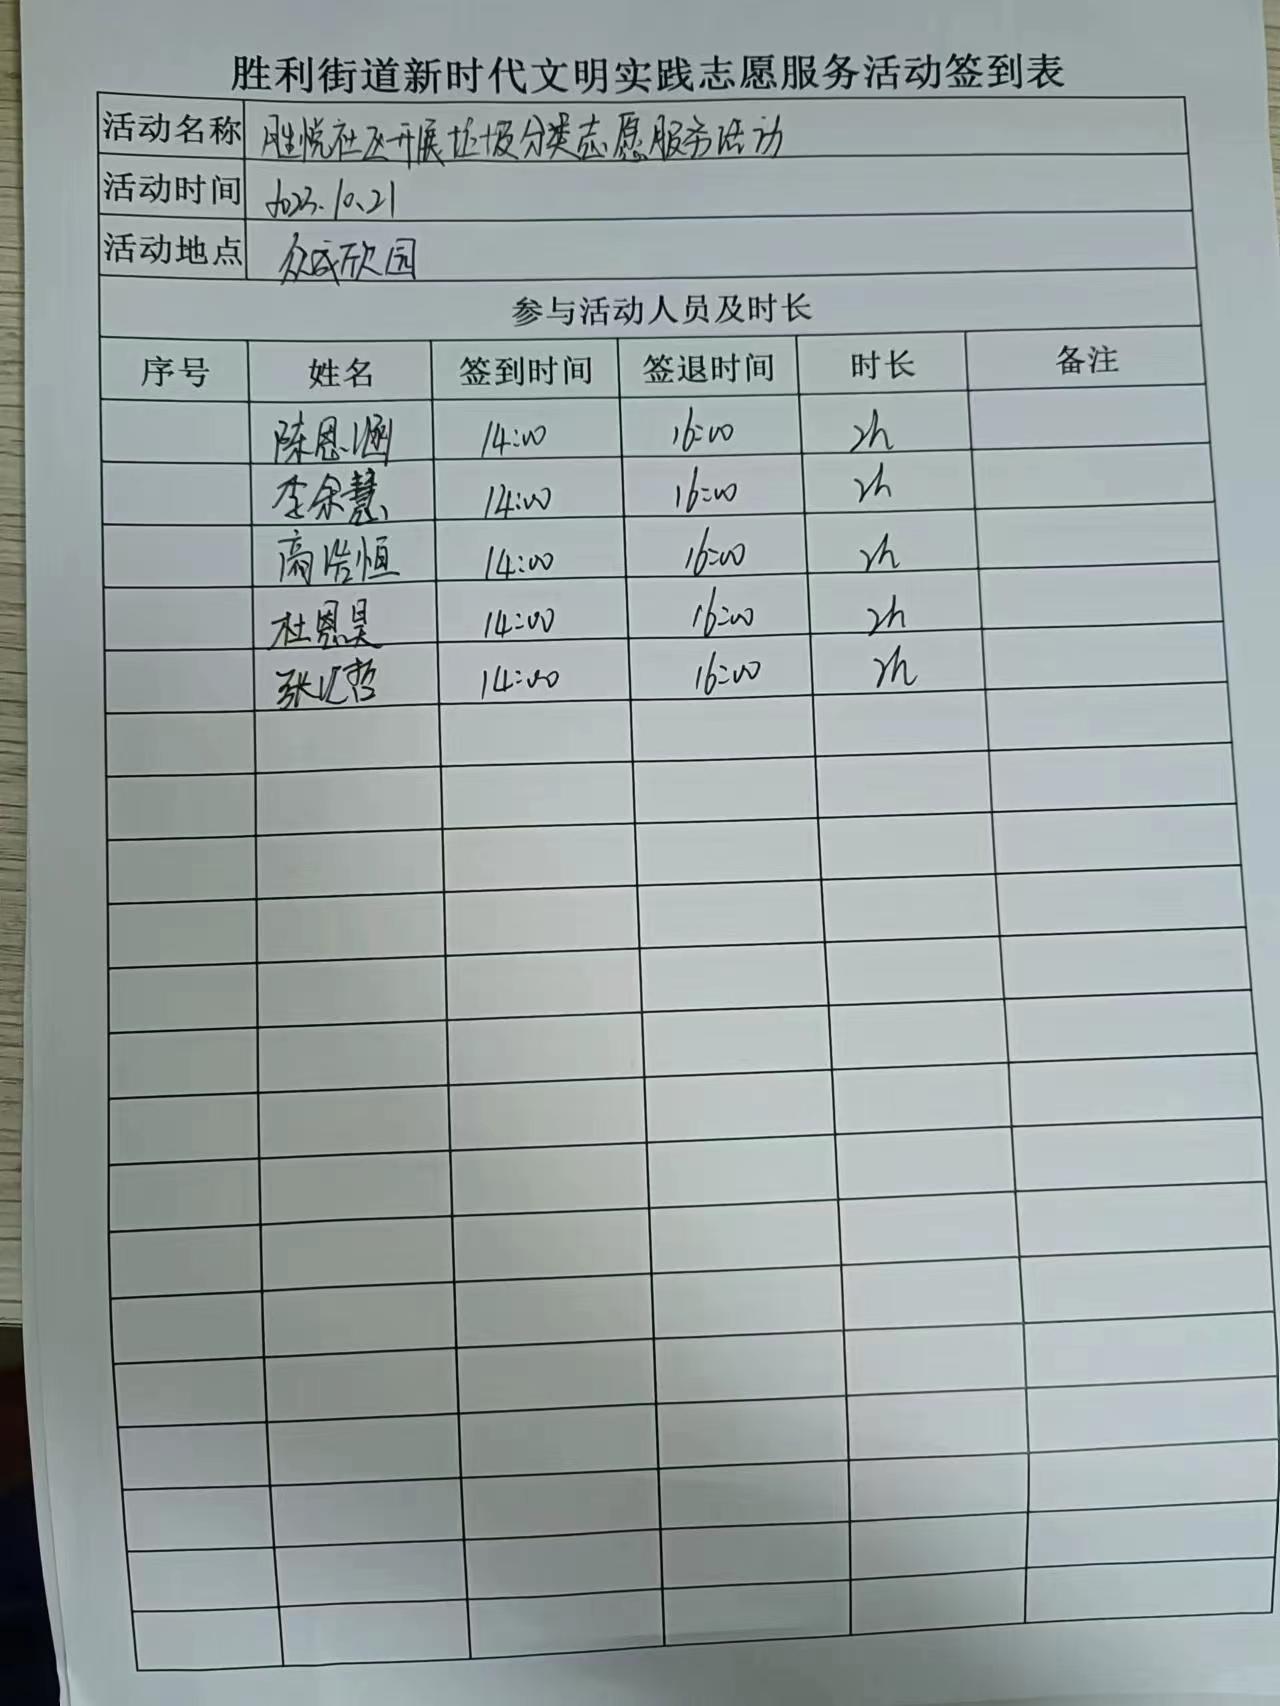 胜利街道新时代文明实践志愿服务活动签到表
活动名称 胜悦社区开展垃圾分类志愿服务活动
活动时间 2023.10.21
活动地点 众成欣园
参与活动人员及时长
序号 姓名 签到时间 签退时间 时长 备注
陈恩涵 14:00 16:00 2h
李余慧 14:00 16:00 2h
高浩恒 14:00 16:00 2h
杜恩昊 14:00 16:00 2h
张 哲 14:00 16:00 2h